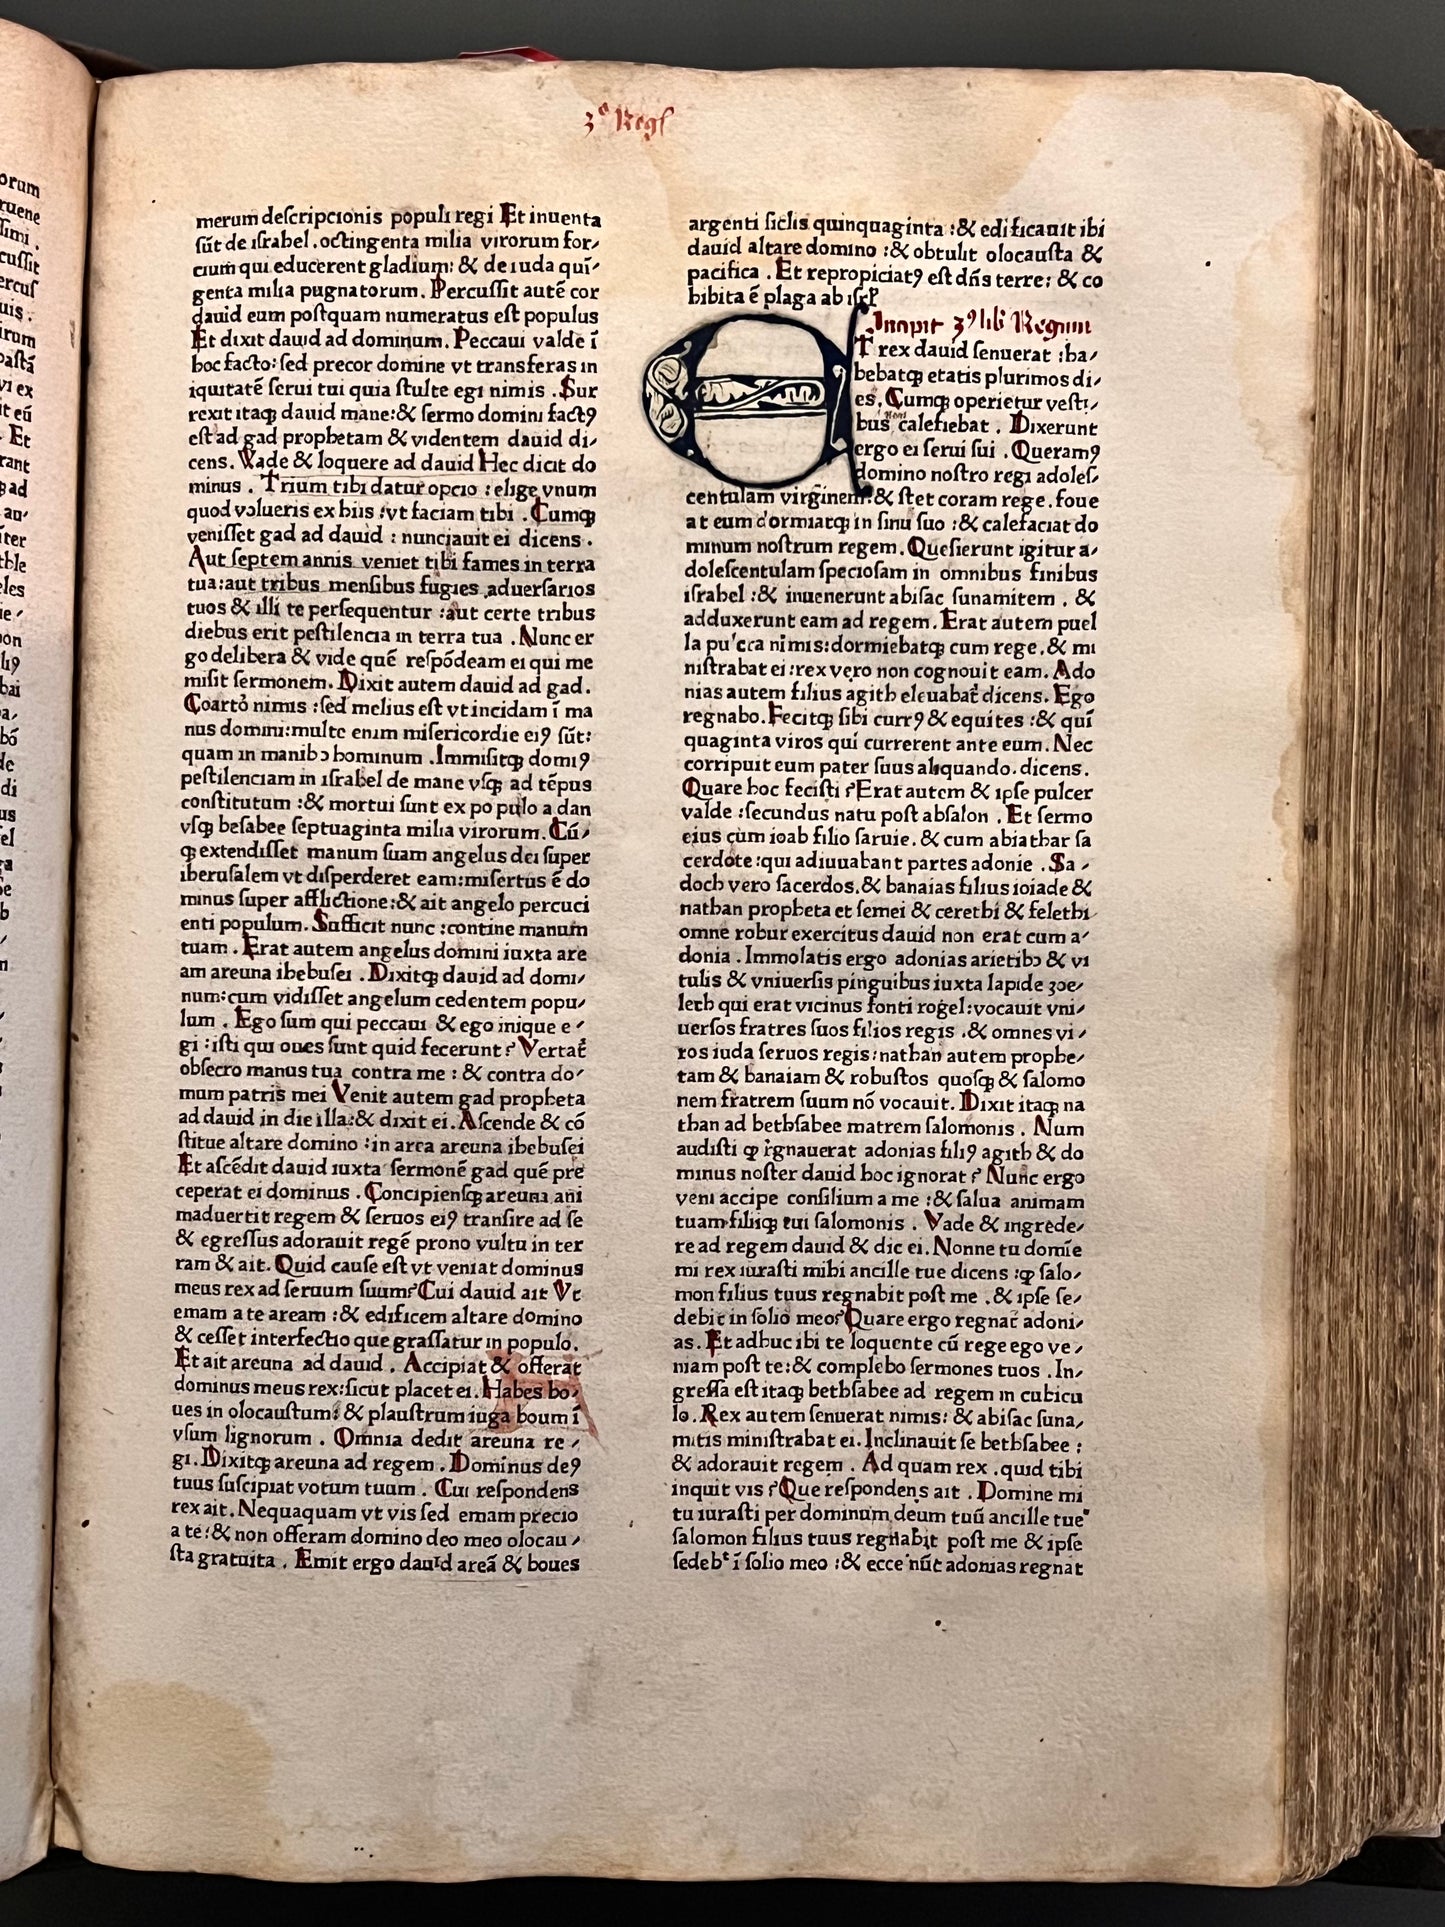 3ᵃ Regſ
merum deſcripcionis populi regi Et inuenta
ſūt de iſrahel .octingenta milia virorum for⸗
cium qui educerent gladium: & de iuda quī⸗
genta milia pugnatorum. Percuſſit autē cor
dauid eum poſtquam numeratus eſt populus
Et dixit dauid ad dominum. Peccaui valde ī
hoc facto: ſed precor domine vt transferas in
iquitatē ſerui tui quia ſtulte egi nimis . Sur
rexit itaqꝫ dauid mane:& ſermo domini factꝰ
eſt ad gad prophetam & videntem dauid di⸗
cens. Wade & loquere ad dauid Hec dicit do
minus . Trium tibi datur opcio : elige vnum
quod volueris ex hiis :vt faciam tibi . Cumqꝫ
veniſſet gad ad dauid : nunciauit ei dicens .
Aut ſeptem annis veniet tibi fames in terra
tua:aut tribus menſibus fugies aduerſarios
tuos & illi te perſequentur :aut certe tribus
diebus erit peſtilencia in terra tua . Nunc er
go delibera & vide quē reſpōdeam ei qui me
miſit ſermonem. Dixit autem dauid ad gad.
Coartoꝛ nimis :ſed melius eſt vt incidam ī ma
nus domini:multe enim miſericordie eiꝰ ſūt:
quam in manibꝰ hominum .Immiſitqꝫ domīꝰ
peſtilenciam in iſrahel de mane vſqꝫ ad tēpus
conſtitutum :& mortui ſunt ex populo a dan
vſqꝫ beſabee ſeptuaginta milia virorum. Cū⸗
qꝫ extendiſſet manum ſuam angelus dei ſuper
iheruſalem vt diſperderet eam:miſertus ē do
minus ſuper afflictione:& ait angelo percuci
enti populum. Sufficit nunc :contine manum
tuam . Erat autem angelus domini iuxta are
am areuna ihebuſei . Dixitqꝫ dauid ad domi⸗
num:cum vidiſſet angelum cedentem popu⸗
lum . Ego ſum qui peccaui & ego inique e⸗
gi :iſti qui oues ſunt quid fecerunt? Vertat̄
obſecro manus tua contra me : & contra do⸗
mum patris mei Venit autem gad propheta
ad dauid in die illa:& dixit ei. Aſcende & cō
ſtitue altare domino :in area areuna ihebuſei
Et aſcēdit dauid iuxta ſermonē gad quē pre
ceperat ei dominus . Concipienſqꝫ areuna ani
maduertit regem & ſeruos eiꝰ tranſire ad ſe
& egreſſus adorauit regē prono vultu in ter
ram & ait. Quid cauſe eſt vt veniat dominus
meus rex ad ſeruum ſuum? Cui dauid ait Vt
emam a te aream :& edificem altare domino
& ceſſet interfectio que graſſatur in populo.
Et ait areuna ad dauid . Accipiat & offerat
dominus meus rex:ſicut placet ei. Habes bo⸗
ues in olocauſtum: & plauſtrum iuga boum ī
vſum lignorum . Omnia dedit areuna re⸗
gi. Dixitqꝫ areuna ad regem . Dominus deꝰ
tuus ſuſcipiat votum tuum . Cui reſpondens
rex ait. Nequaquam vt vis ſed emam precio
a te:& non offeram domino deo meo olocau⸗
ſta gratuita . Emit ergo dauid areā & boues
argenti ſiclis quinquaginta :& edificauit ibi
dauid altare domino :& obtulit olocauſta &
pacifica . Et repropiciatꝰ eſt dn̄s terre: & co
hibita ē plaga ab iſrl̄
Incipit 3ꝰ lib̄ Regum
ET rex dauid ſenuerat :ha⸗
bebatqꝫ etatis plurimos di⸗
es. Cumqꝫ operietur veſti⸗
bus non calefiebat . Dixerunt
ergo ei ſerui ſui . Queramꝰ
domino noſtro regi adoleſ⸗
centulam virginem:& ſtet coram rege. foue
at eum dormiatqꝫ in ſinu ſuo :& calefaciat do
minum noſtrum regem. Queſierunt igitur a⸗
doleſcentulam ſpecioſam in omnibus finibus
iſrahel :& inuenerunt abiſac ſunamitem . &
adduxerunt eam ad regem. Erat autem puel
la pulcra nimis:dormiebatqꝫ cum rege. & mi
niſtrabat ei :rex vero non cognouit eam. Ado
nias autem filius agith eleuabat̄ dicens. Ego
regnabo. Fecitqꝫ ſibi currꝰ & equites :& quī
quaginta viros qui currerent ante eum. Nec
corripuit eum pater ſuus aliquando. dicens.
Quare hoc feciſti ? Erat autem & ipſe pulcer
valde :ſecundus natu poſt abſalon . Et ſermo
eius cum ioab filio ſaruie. & cum abiathar ſa
cerdote:qui adiuuabant partes adonie . Sa⸗
doch vero ſacerdos. & banaias filius ioiade &
nathan propheta et ſemei & cerethi & felethi
omne robur exercitus dauid non erat cum a⸗
donia . Immolatis ergo adonias arietibꝰ & vi
tulis & vniuerſis pinguibus iuxta lapidē zoe⸗
leth qui erat vicinus fonti rogel:vocauit vni⸗
uerſos fratres ſuos filios regis .& omnes vi⸗
ros iuda ſeruos regis:nathan autem prophe⸗
tam & banaiam & robuſtos quoſqꝫ & ſalomo
nem fratrem ſuum nō vocauit. Dixit itaqꝫ na
than ad bethſabee matrem ſalomonis . Num
audiſti ꝙ regnauerat adonias filiꝰ agith & do
minus noſter dauid hoc ignorat ? Nunc ergo
veni accipe conſilium a me :& ſalua animam
tuam filiiqꝫ tui ſalomonis . Vade & ingrede⸗
re ad regem dauid & dic ei. Nonne tu domīe
mi rex iuraſti mihi ancille tue dicens :ꝙ ſalo⸗
mon filius tuus regnabit poſt me .& ipſe ſe⸗
debit in ſolio meo? Quare ergo regnat̄ adoni⸗
as. Et adhuc ibi te loquente cū rege ego ve⸗
niam poſt te:& complebo ſermones tuos . In⸗
greſſa eſt itaqꝫ bethſabee ad regem in cubicu
lo. Rex autem ſenuerat nimis: & abiſac ſuna⸗
mitis miniſtrabat ei. Inclinauit ſe bethſabee :
& adorauit regem . Ad quam rex .quid tibi
inquit vis ? Que reſpondens ait . Domine mi
tu iuraſti per dominum deum tuū ancille tue
ſalomon filius tuus regnabit poſt me & ipſe
ſedebᵗ ī ſolio meo :& ecce nūc adonias regnat